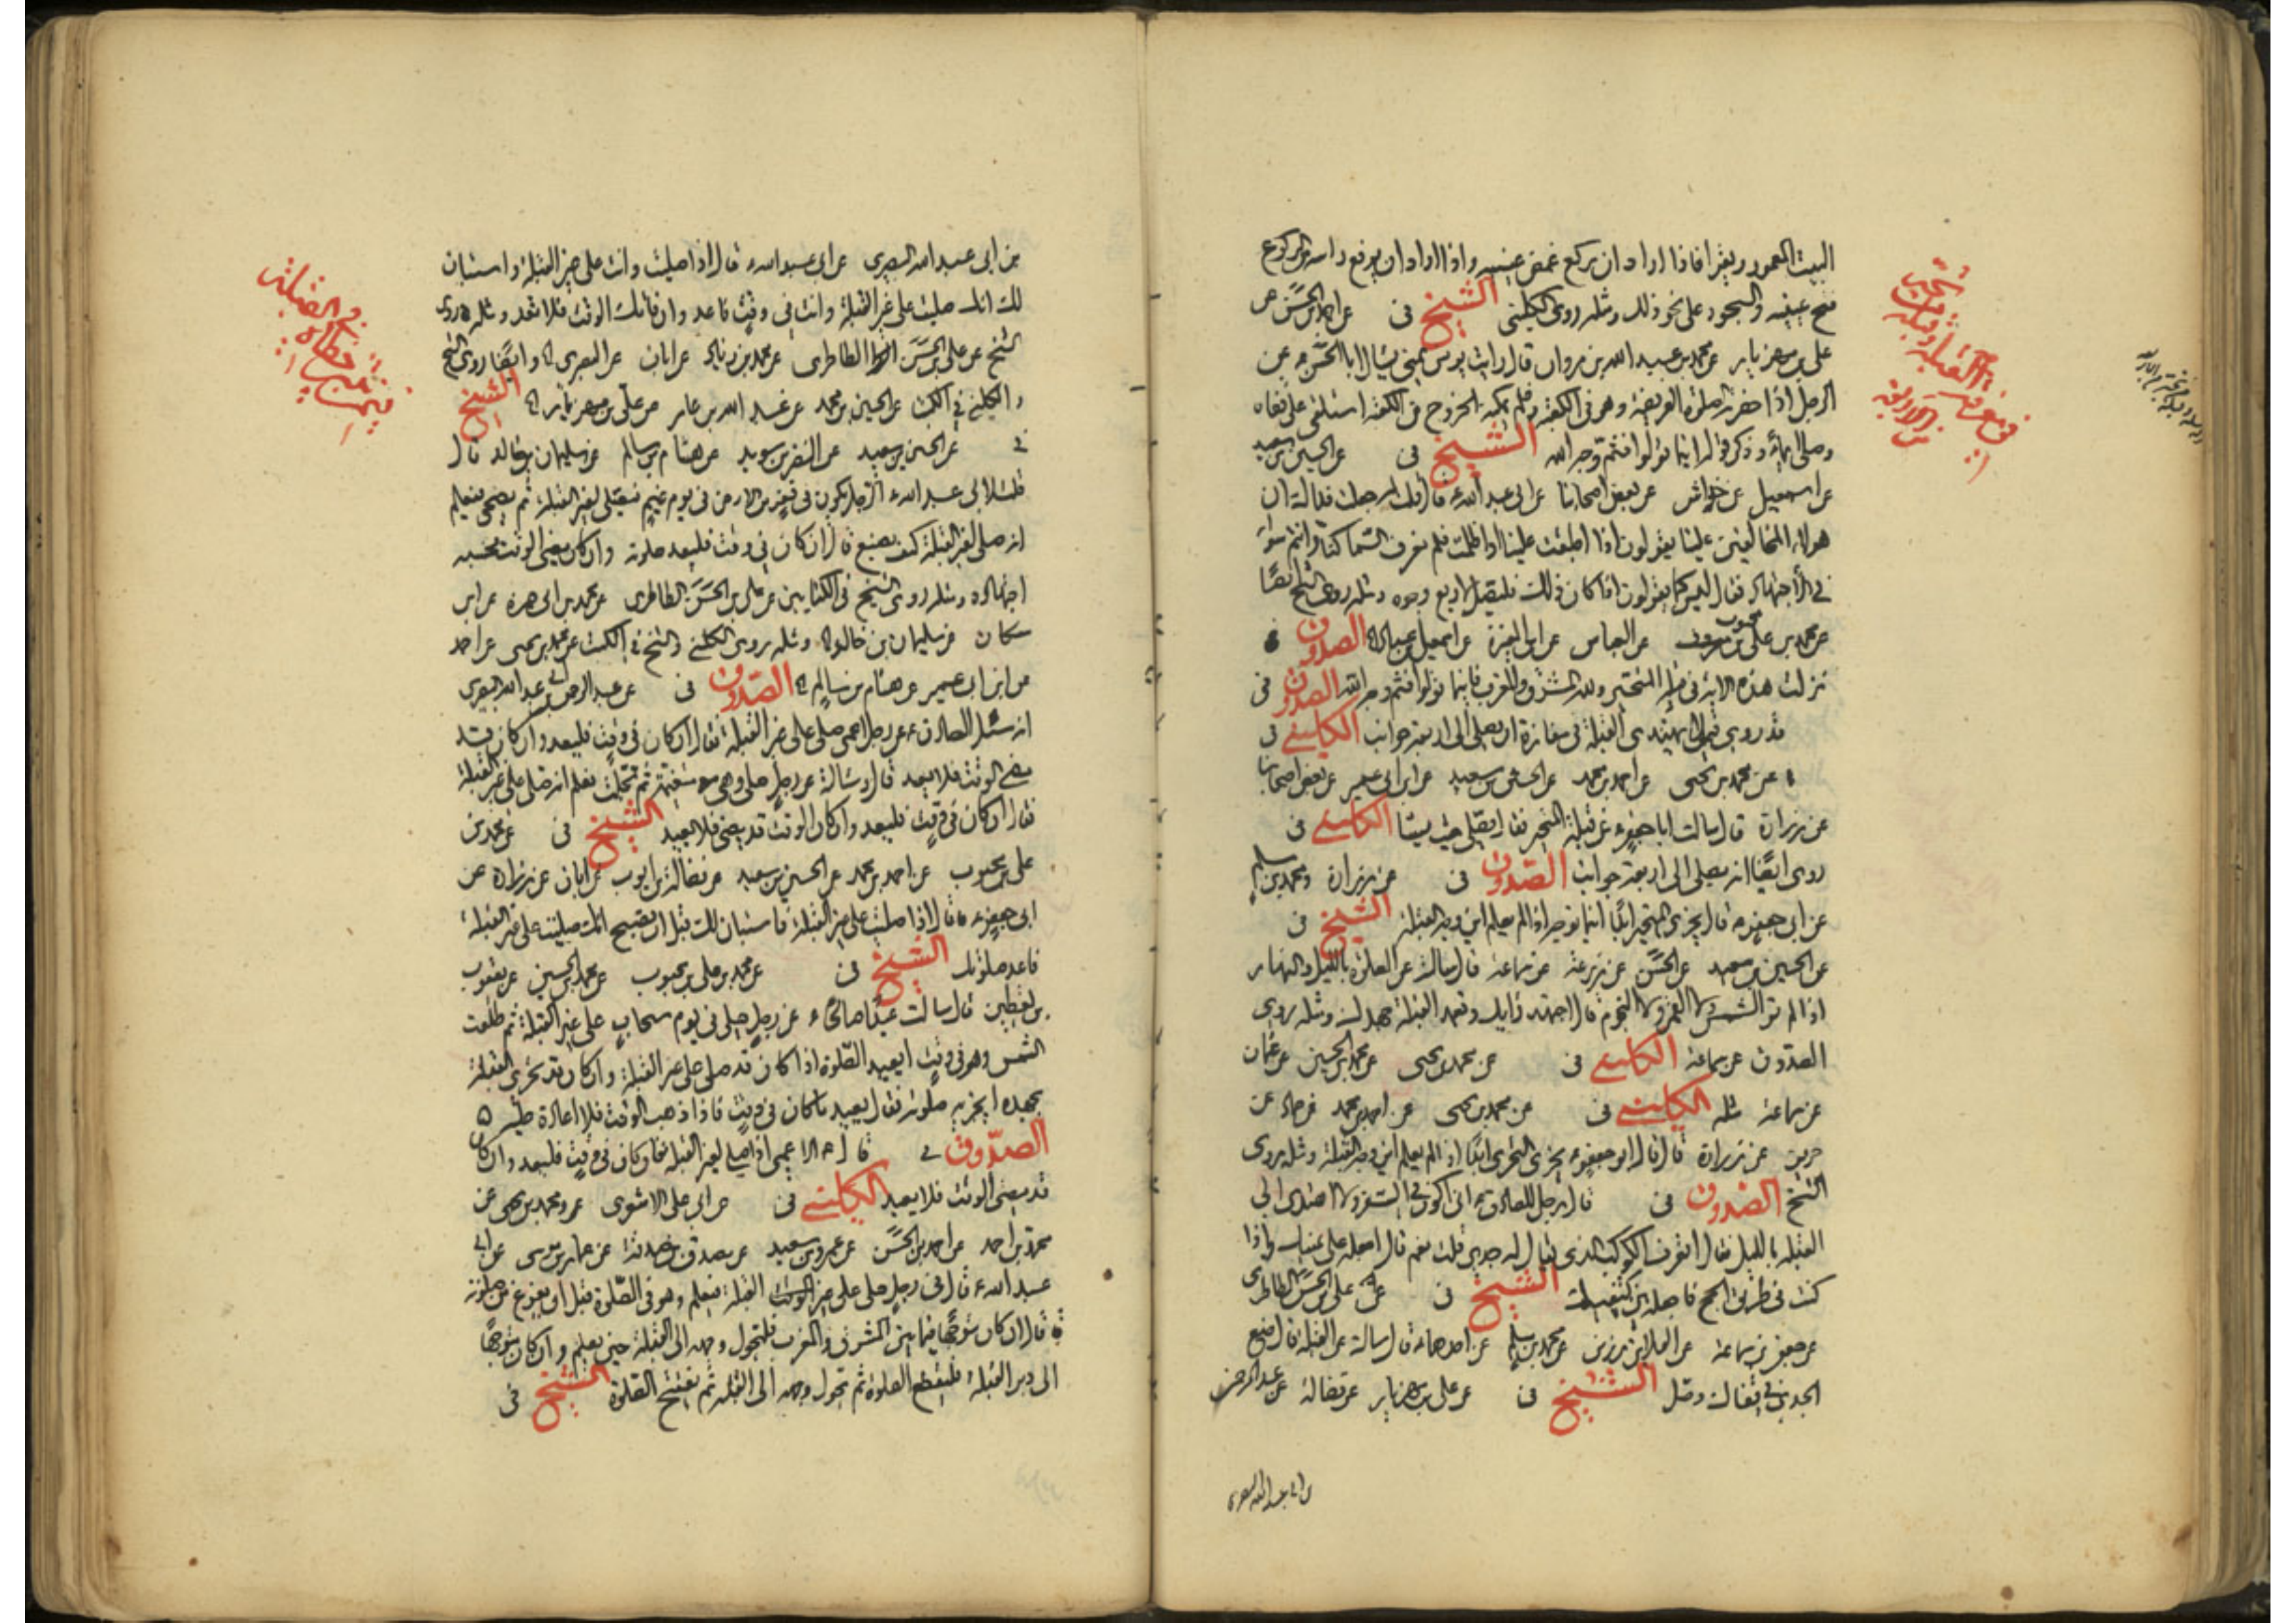 البيت المعمور ويقرا فاذا اراد ان يركع غمض عينيه واذا اراد ان يرفع راسه من الركوع
فتح عينيه والسجود على نحو ذلك ومثله روى الكليني الشيخ فى عن احمد بن الحسن عن
على بن مهزيار عن محمد بن عبد الله بن مروان قال رايت يونس بمنى يسال ابا الحسن ع عن
الرجل اذا حضرته صلوة الفريضة وهو فى الكعبة فلم يمكنه الخروج من الكعبة استلقى على قفاه
وصلى ايماء وذكر قوله اينما تولوا فثم وجه الله الشيخ فى عن الحسين بن سعيد
عن اسمعيل عن خراش عن بعض اصحابنا عن ابى عبد الله ع قال قلت له جعلت فداك ان
هولاء المخالفين علينا يقولون اذا اطبقت علينا او اظلمت فلم نعرف السماء كنا وانتم سواء
فى الاجتهاد فقال ليس كما يقولون اذا كان ذلك فليصل لاربع وجوه ومثله روى الشيخ ايضا
عن محمد بن على بن محبوب عن العباس عن ابن المغيرة عن اسمعيل بن عباد الصدوق
نزلت هذه الاية فى قبلة المتحير ولله المشرق والمغرب فاينما تولوا فثم وجه الله الصدوق فى
قد روى فيمن لا يهتدى القبلة فى مفازة ان يصلى الى اربعة جوانب الكليني فى
عن محمد بن يحيى عن احمد بن محمد عن الحسين بن سعيد عن ابن ابى عمير عن بعض اصحابنا
عن زرارة قال سالت ابا جعفر ع عن قبلة المتحير فقال يصلى حيث يشا الكليني فى
روى ايضا انه يصلى الى اربعة جوانب الصدوق فى عن زرارة ومحمد بن مسلم
عن ابى جعفر ع قال يجزى المتحير ابدا اينما توجه اذا لم يعلم اين وجه القبلة الشيخ فى
عن الحسين بن سعيد عن الحسن عن زرعة عن سماعة قال سالته عن الصلوة بالليل والنهار
اذا لم تر الشمس ولا القمر ولا النجوم قال اجتهد رايك وتعمد القبلة جهدك ومثله روى
الصدوق عن سماعة الكليني فى عن محمد بن يحيى عن محمد بن الحسين عن عثمان
عن سماعة مثله الكليني فى عن محمد بن يحيى عن احمد بن محمد عن حماد عن
حريز عن زرارة قال قال ابو جعفر ع يجزى التحرى ابدا اذا لم يعلم اين وجه القبلة ومثله روى
الشيخ الصدوق فى قال رجل للصادق ع انى اكون فى السفر ولا اهتدى الى
القبلة بالليل فقال اتعرف الكوكب الذى يقال له جدى قلت نعم قال اجعله على يمينك واذا
كنت فى طريق الحج فاجعله بين كتفيك الشيخ فى عن على بن الحسن الطاطرى
عن جعفر بن سماعة عن العلا بن رزين عن محمد بن مسلم عن احدهما ع قال سالته عن القبلة قال ضع
الجدى فى قفاك وصل الشيخ فى عن على بن مهزيار عن فضالة عن عبد الرحمن
بن ابى عبد الله البصرى
بن ابى عبد الله البصرى عن ابى عبد الله ع قال اذا صليت وانت على غير القبلة واستبان
لك انك صليت على غير القبلة وانت فى وقت فاعد وان فاتك الوقت فلا تعد ومثله روى
الشيخ عن على بن الحسن الطاطرى عن محمد بن زياد عن ابان عن البصرى وايضا روى الشيخ
والكليني فى الكتب عن الحسين بن محمد عن عبد الله بن عامر عن على بن مهزيار الشيخ
فى عن الحسين بن سعيد عن النضر بن سويد عن هشام بن سالم عن سليمان بن خالد قال
قلت لابى عبد الله ع الرجل يكون فى قفر من الارض فى يوم غيم فيصلى لغير القبلة ثم يضحى فيعلم
انه صلى لغير القبلة كيف يصنع قال ان كان فى وقت فليعد صلوته وان كان مضى الوقت فحسبه
اجتهاده ومثله روى الشيخ فى الكتابين عن على بن الحسن الطاطرى عن محمد بن ابى حمزة عن ابن
مسكان عن سليمان بن خالد ومثله روى الكليني والشيخ فى الكتب عن محمد بن يحيى عن احمد
عن ابن ابى عمير عن هشام بن سالم الصدوق فى عن عبد الرحمن بن ابى عبد الله البصرى
انه سئل الصادق ع عن رجل اعمى صلى على غير القبلة فقال ان كان فى وقت فليعد وان كان قد
مضى الوقت فلا يعد قال وسالته عن رجل صلى وهى متغيمة ثم تجلت فعلم انه صلى على غير القبلة
فقال ان كان فى وقت فليعد وان كان الوقت قد مضى فلا يعيد الشيخ فى عن محمد بن
على بن محبوب عن احمد بن محمد عن الحسين بن سعيد عن فضالة بن ايوب عن ابان عن زرارة عن
ابى جعفر ع قال اذا صليت على غير القبلة فاستبان لك قبل ان تصبح انك صليت على غير القبلة
فاعد صلوتك الشيخ فى عن محمد بن على بن محبوب عن محمد بن الحسين عن يعقوب
بن يقطين قال سالت عبدا صالحا ع عن رجل صلى فى يوم سحاب على غير القبلة ثم طلعت
الشمس وهو فى وقت ايعيد الصلوة اذا كان قد صلى على غير القبلة وان كان قد تحرى القبلة
بجهده ايجزيه صلوته فقال يعيد ما كان فى وقت فاذا ذهب الوقت فلا اعادة عليه
الصدوق فى قال ع الاعمى اذا صلى لغير القبلة فان كان فى وقت فليعد وان كان
قد مضى الوقت فلا يعيد الكليني فى عن ابى على الاشعرى عن ومحمد بن يحيى عن
محمد بن احمد عن احمد بن الحسن عن عمرو بن سعيد عن مصدق بن صدقة عن عمار بن موسى عن ابى
عبد الله ع قال فى رجل صلى على غير القبلة فيعلم وهو فى الصلوة قبل ان يفرغ من صلوته
قال ان كان متوجها فيما بين المشرق والمغرب فليحول وجهه الى القبلة حين يعلم وان كان متوجها
الى دبر القبلة فليقطع الصلوة ثم يحول وجهه الى القبلة ثم يفتتح الصلوة الشيخ فى